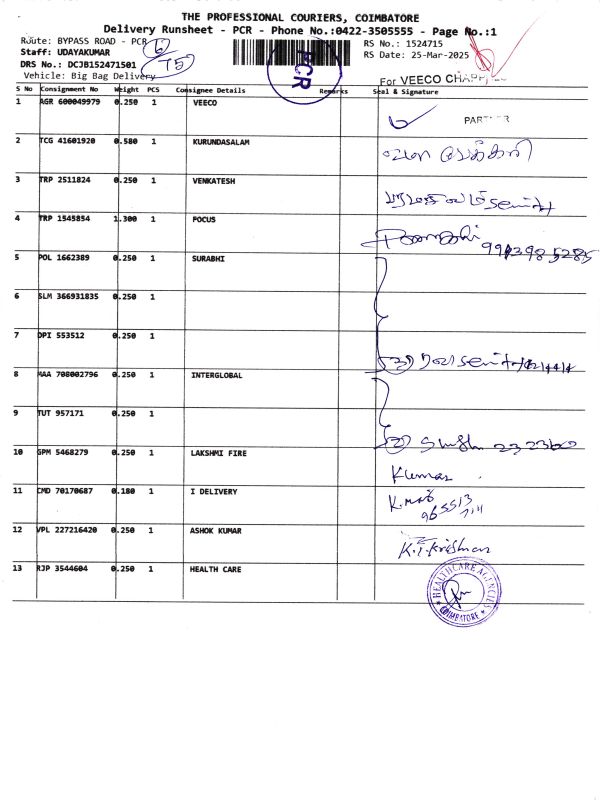 THE PROFESSIONAL COURIERS, COIMBATORE
Delivery Runsheet - PCR - Phone No.:0422-3505555 - Page No.:1
Route: BYPASS ROAD - PCR
RS No.: 1524715
Staff: UDAYAKUMAR
RS Date: 25-Mar-2025
DRS No.: DCJB152471501
Vehicle: Big Bag Delivery
6
75
PCR
For VEECO
S No Consignment No Weight PCS Consignee Details Remarks Seal & Signature
1 AGR 600049979 0.250 1 VEECO
PARTNER
2 TCG 41601920 0.580 1 KURUNDASALAM
3 TRP 2511824 0.250 1 VENKATESH
4 TRP 1545854 1.300 1 POCUS
5 POL 1662389 0.250 1 SURABHI
6 SLM 366931835 0.250 1
7 DPI 553512 0.250 1
8 MAA 708002796 0.250 1 INTERGLOBAL
9 TUT 957171 0.250 1
10 GPM 5468279 0.250 1 LAKSHMI FIRE
Kumar
11 CMD 70170687 0.180 1 I DELIVERY
12 VPL 227216420 0.250 1 ASHOK KUMAR
K.T. Krishnan
13 RJP 3544604 0.250 1 HEALTH CARE
HEALTHCARE AGENCIES
COIMBATORE